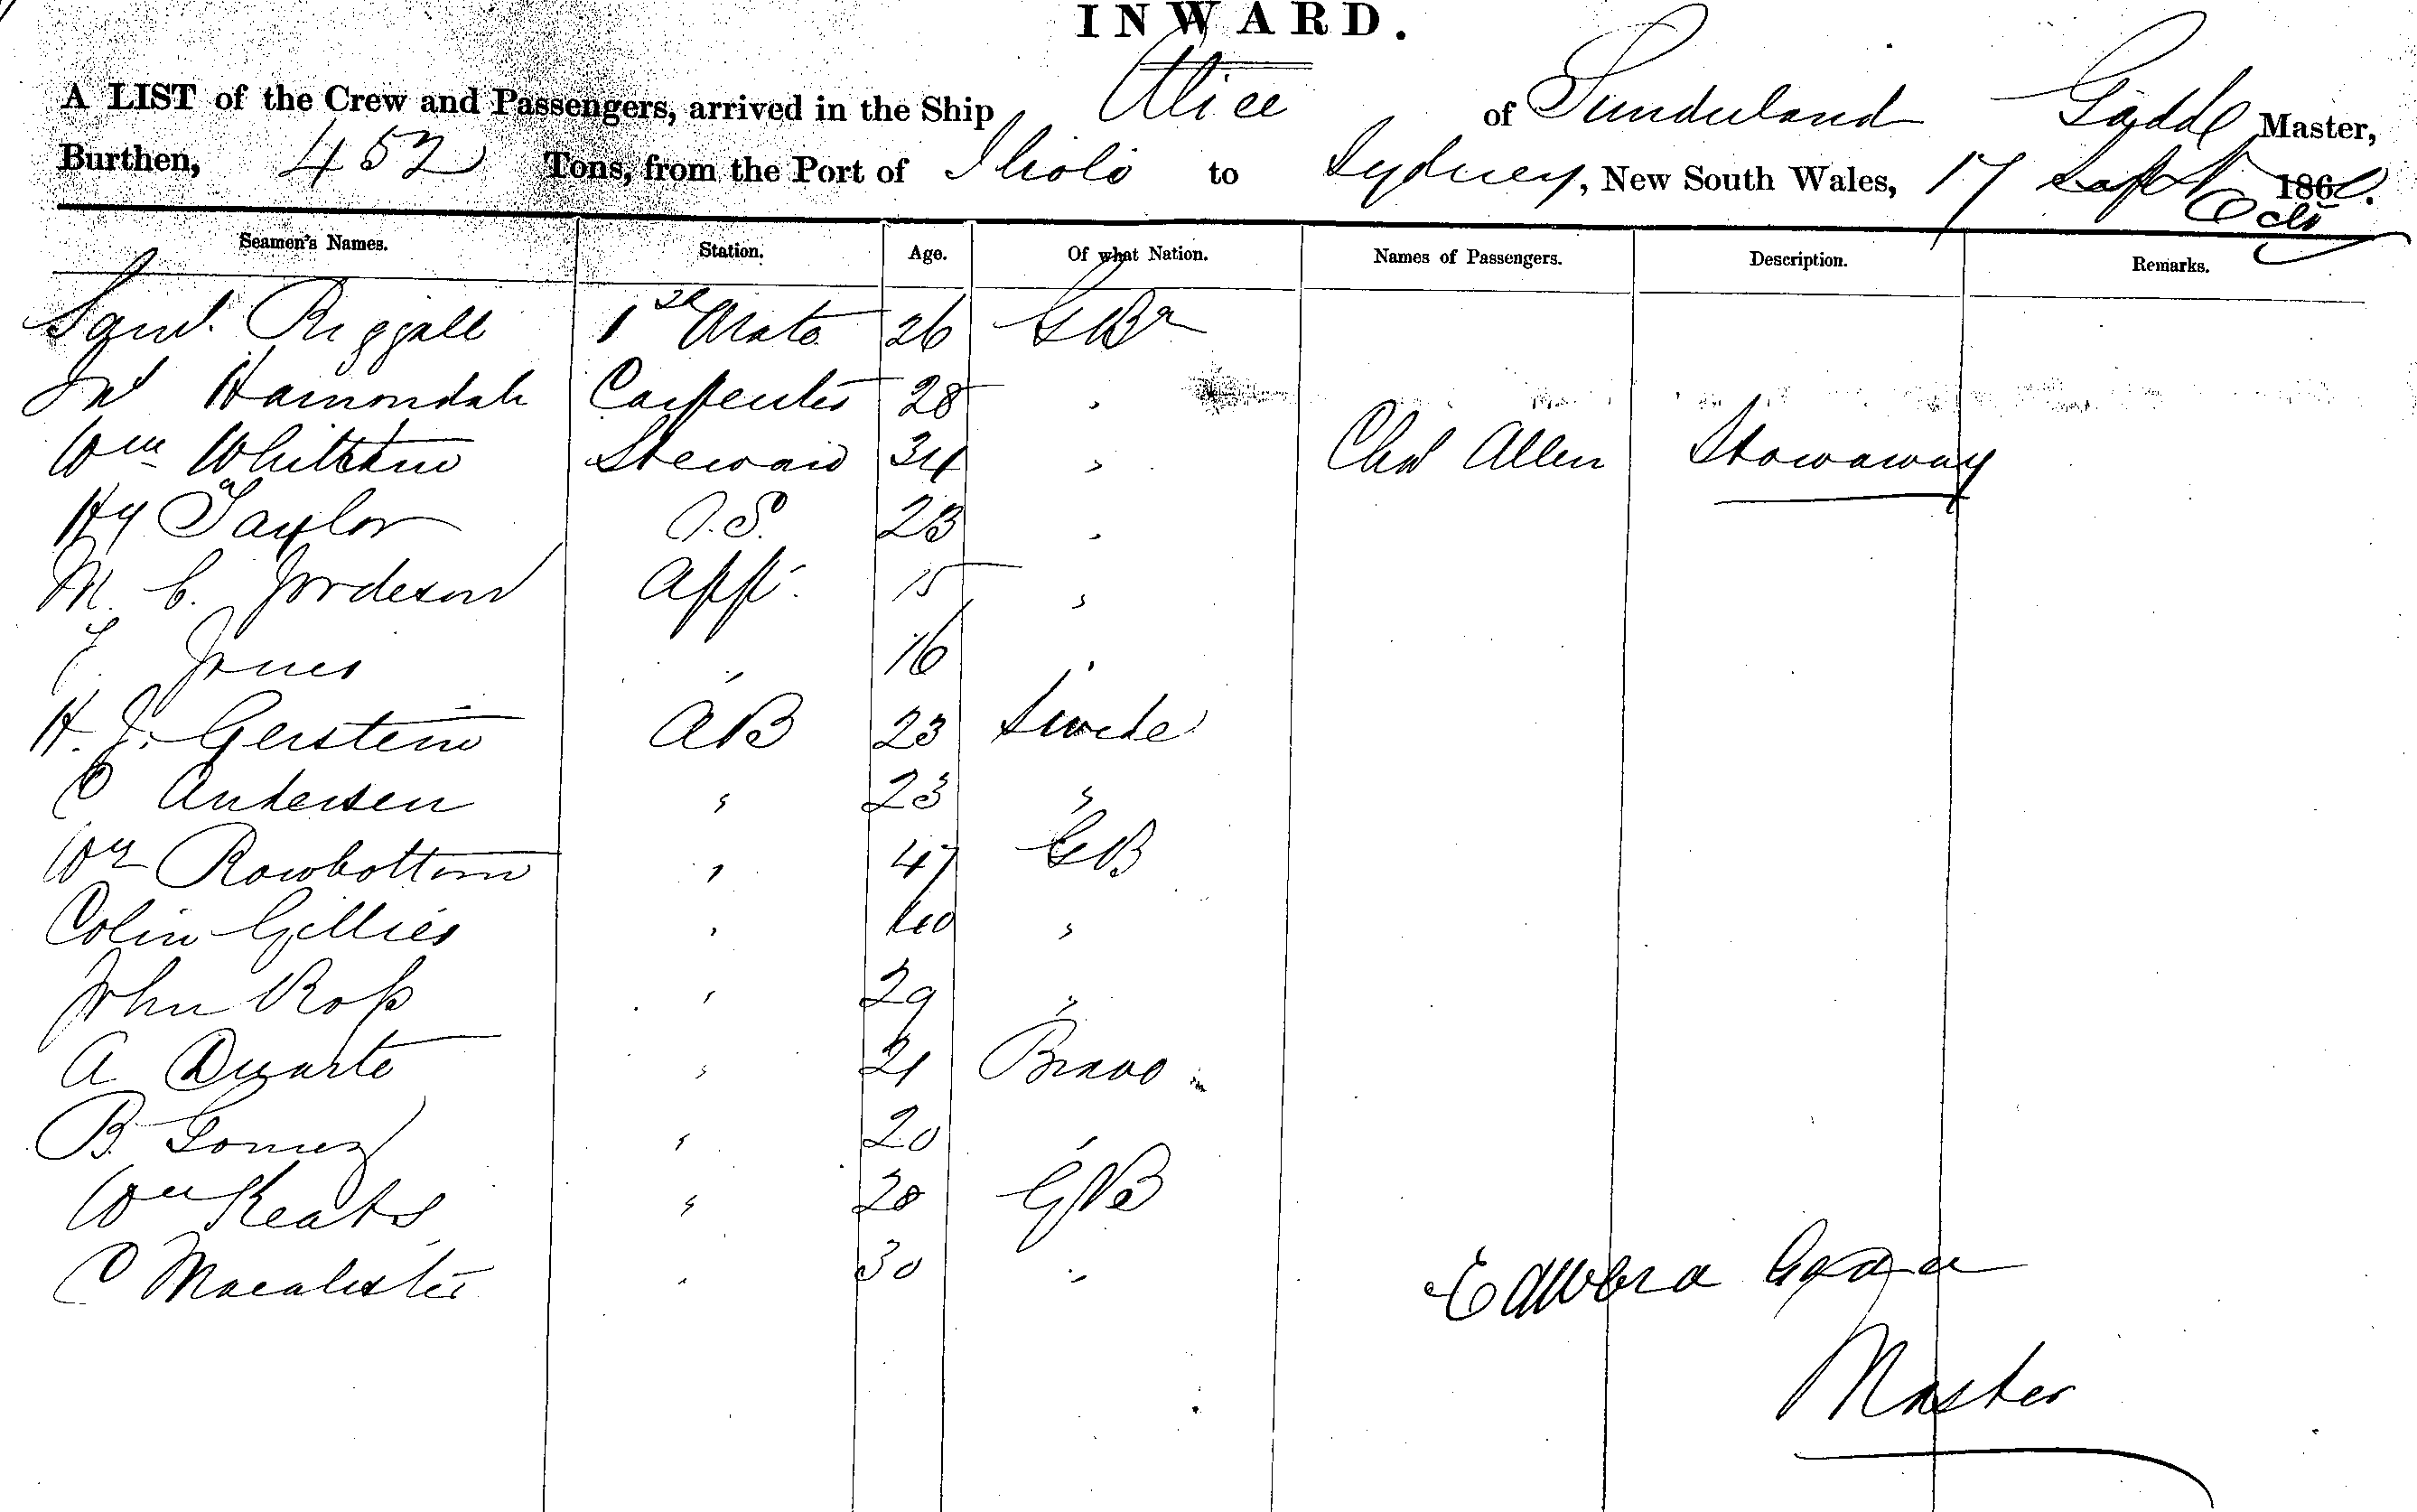 INWARD.
A LIST of the Crew and Passengers, arrived in the Ship Alice of Sunderland Master,
Burthen, 452 Tons, from the Port of Iloilo to Sydney, New South Wales, 17 Sept 186
Oct
Seamen's Names. Station. Age. Of what Nation. Names of Passengers. Description. Remarks.
Saml. Riggall 1st Mate 26 GBr
Hamondale Carpenter 28 "
Wm Steward 34 " Chas Allen Stowaway
Hy Taylor O.S. 23 "
M. C. Jordeson App. 15 "
Jones " 16 "
H. J. Gerstein AB 23 Swede
C Andersen " 23 "
Wm Rowbottom " 47 GB
Colin Gillies " 40 "
John Ross " 29 "
A Duarte " 21 Bravo
B. Gomez " 20 "
Wm Keats " 28 GB
C Macalister " 30 "
Edward
Master